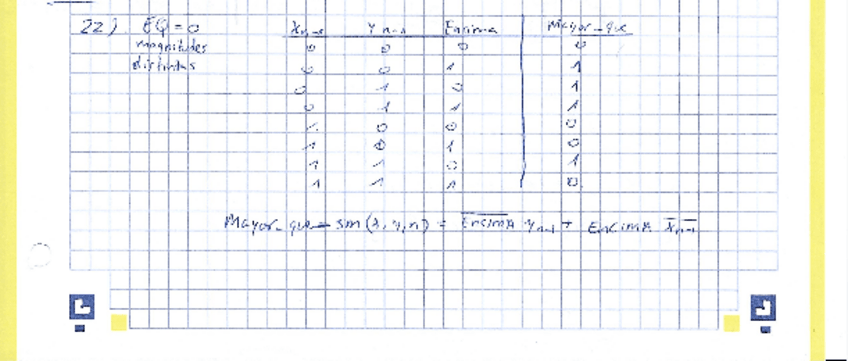 22) EQ = 0 Xn-1 Yn-1 Encima Mayor_que
magnitudes 0 0 0 0
distintas 0 0 1 1
0 1 0 1
0 1 1 1
1 0 0 0
1 0 1 0
1 1 0 1
1 1 1 0
Mayor_que = sm(x,y,n) = \overline{Encima} yn-1 + Encima \overline{xn-1}